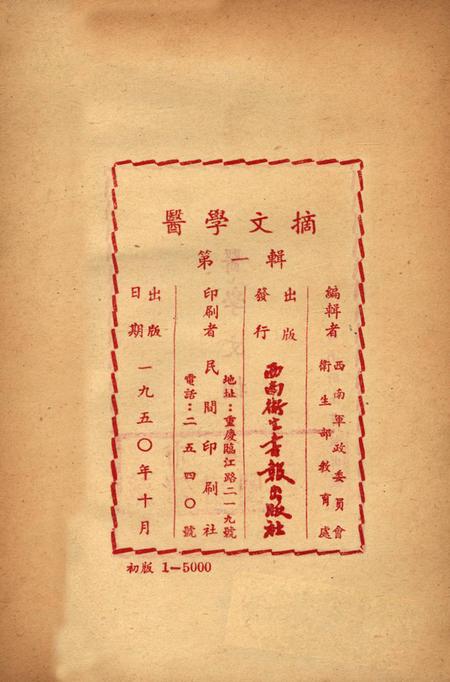 醫學文摘
第一輯
編輯者
西南軍政委員會
衛生部教育處
出版
發行
西南衛生書報出版社
印刷者
民間印刷社
地址：重慶臨江路二一九號
電話：二五四〇號
出版
日期
一九五〇年十月
初版 1—5000